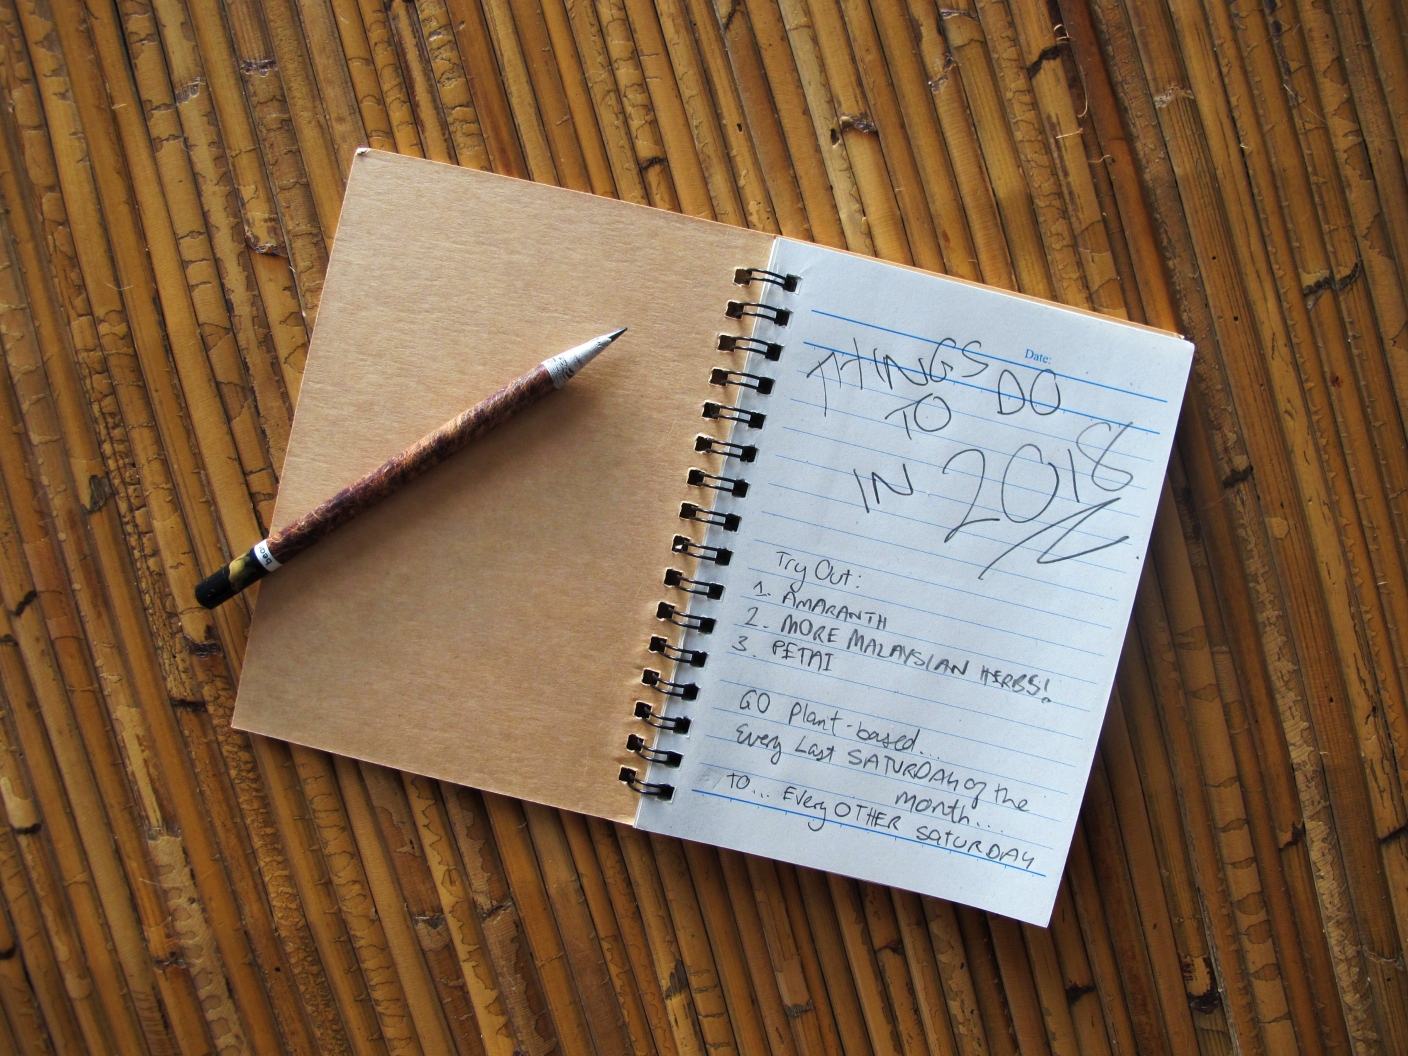 Date:
THINGS DO
TO
IN 2018
Try Out:
1. AMARANTH
2. MORE MALAYSIAN HERBS!
3. PETAI
GO plant-based...
Every Last SATURDAY of the
month...
TO... Every OTHER SATURDAY